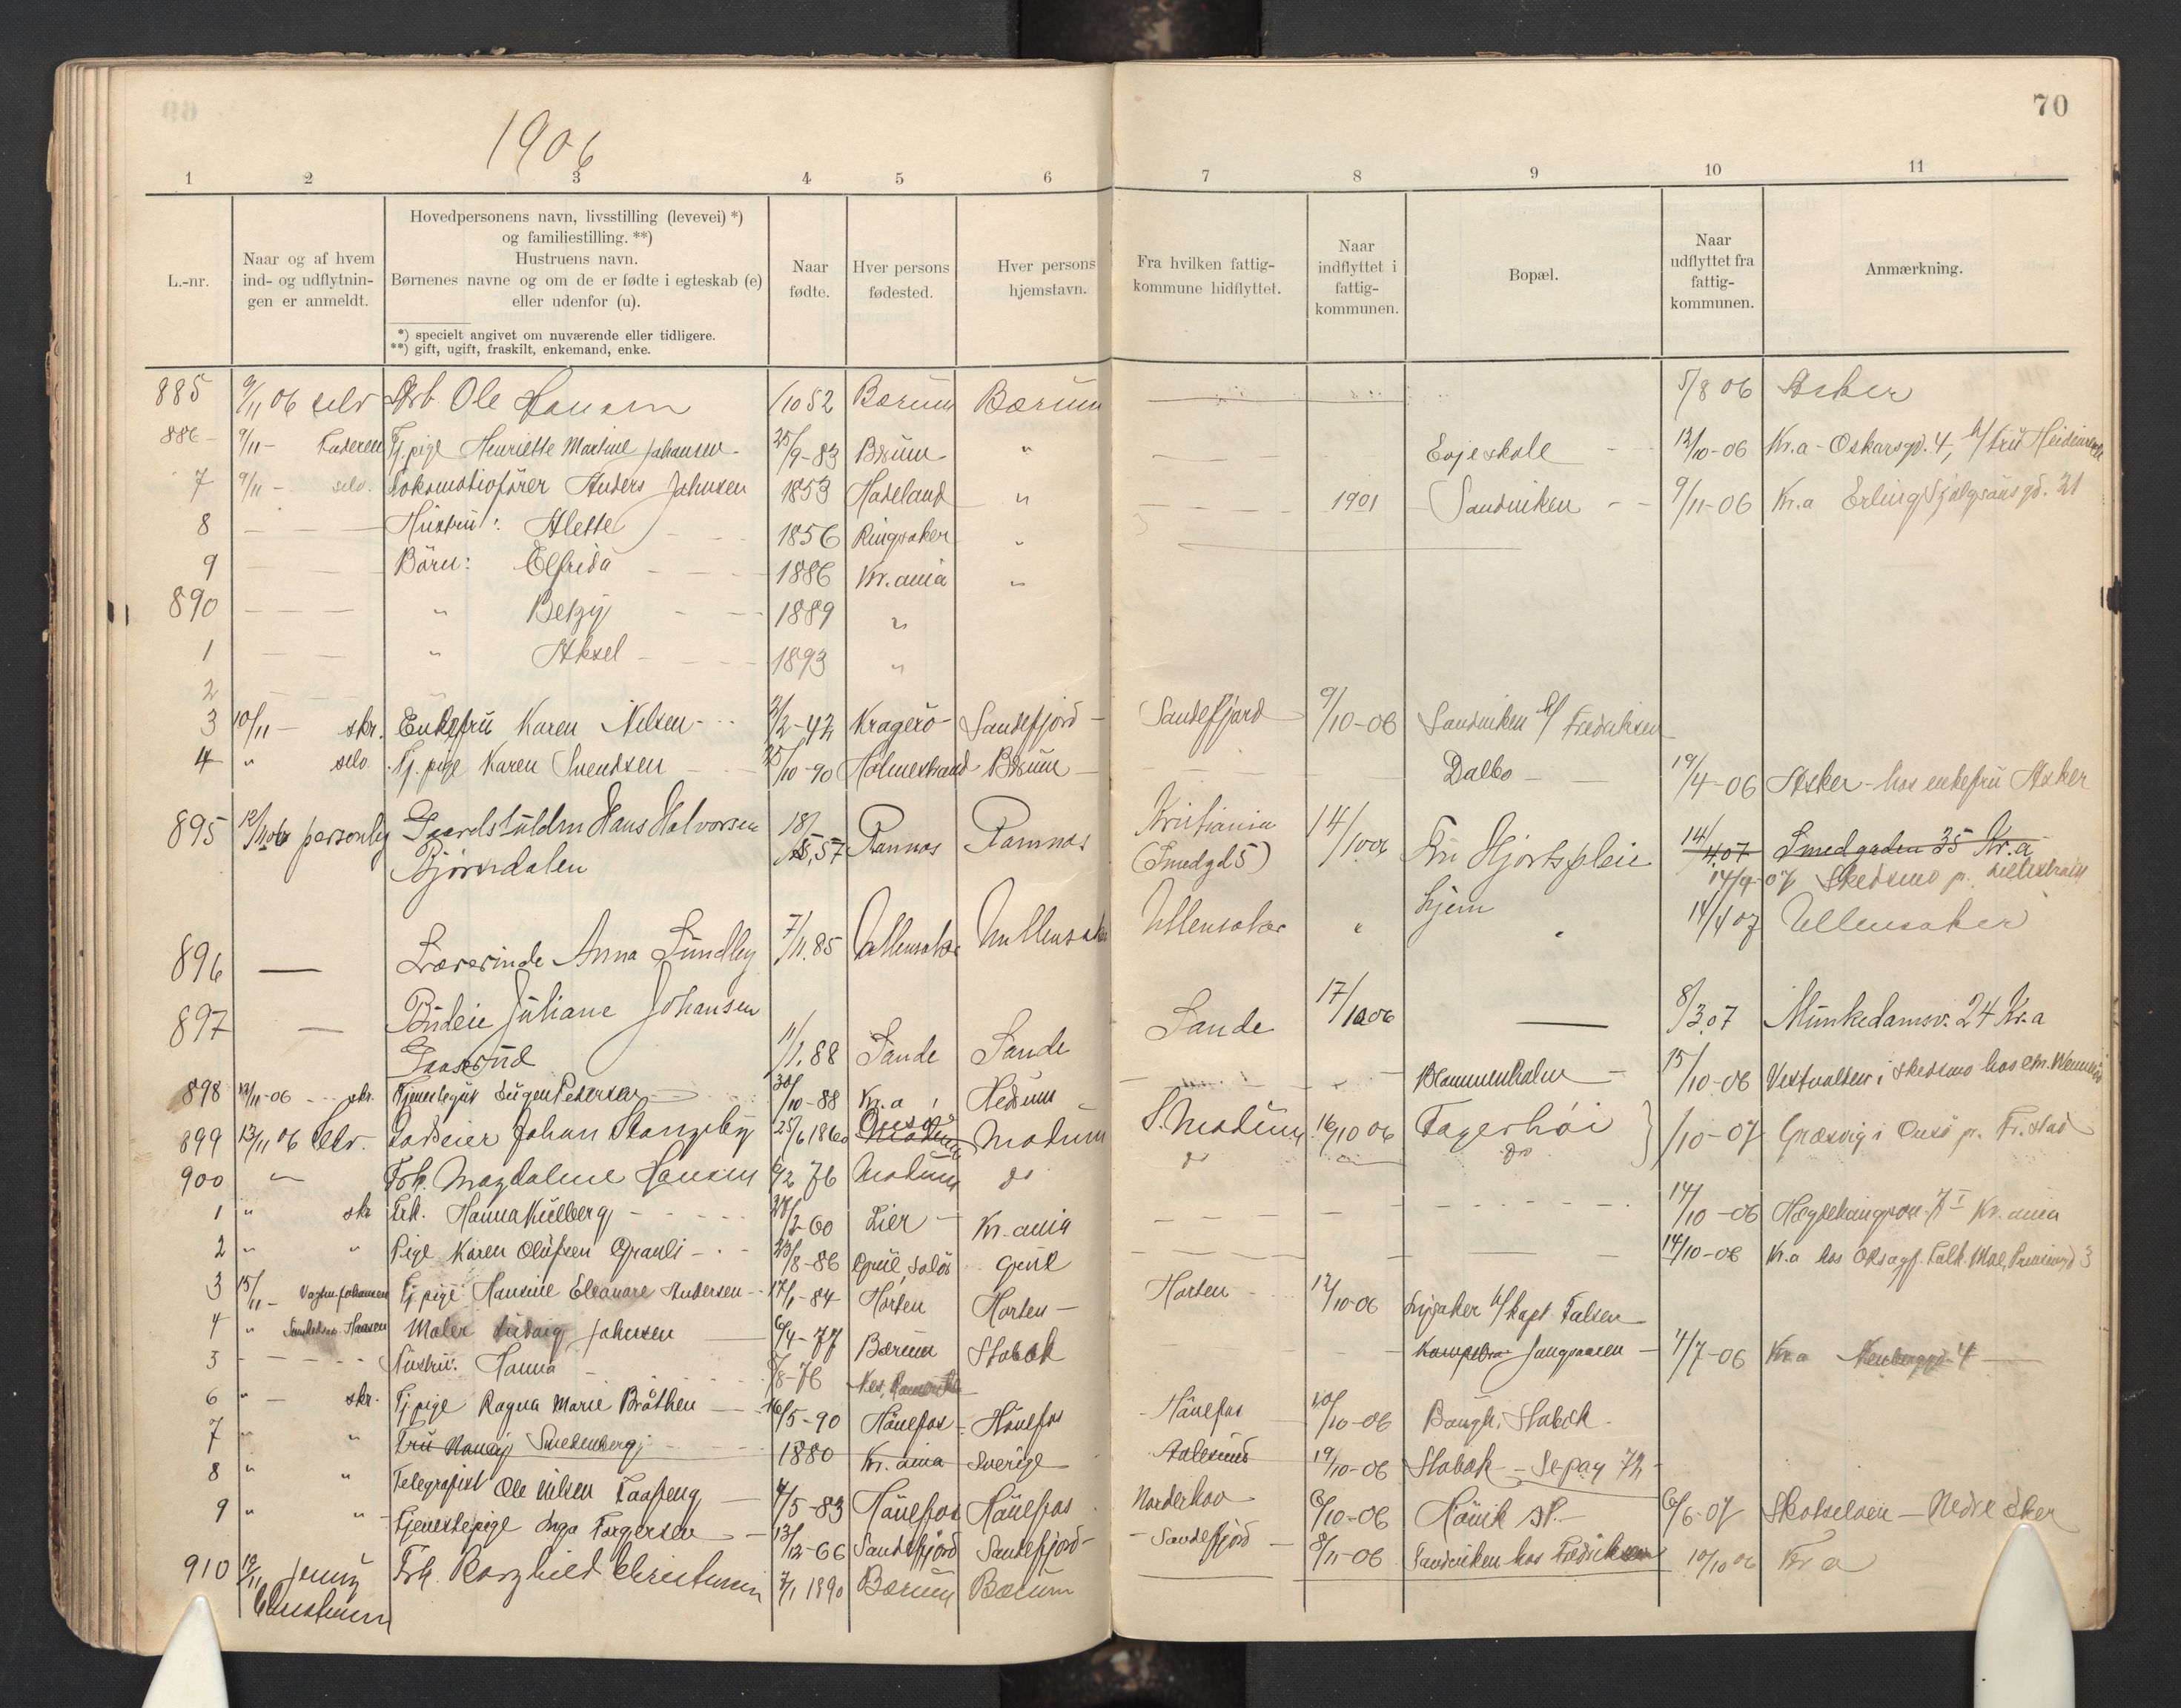 70
1906
1 2 3 4 5 6 7 8 9 10 11
L.-nr.
Naar og af hvem
ind- og udflytnin-
gen er anmeldt.
Hovedpersonens navn, livsstilling (levevei) *)
og familiestilling. **)
Hustruens navn.
Børnenes navne og om de er fødte i egteskab (e)
eller udenfor (u).
*) specielt angivet om nuværende eller tidligere.
**) gift, ugift, fraskilt, enkemand, enke.
Naar
fødte.
Hver persons
fødested.
Hver persons
hjemstavn.
Fra hvilken fattig-
kommune hidflyttet.
Naar
indflyttet i
fattig-
kommunen.
Bopæl.
Naar
udflyttet fra
fattig-
kommunen.
Anmærkning.
885 9/11 06 selv Arb. Ole Hansen 1/10 52 Bærum Bærum 5/8 06 Asker
886 – 9/11 – Faderen Tj.pige Henriette Martine Johansen 25/9-83 Bærum " Evje skole 12/10-06 Kr.a - Oskarsgd. 4, h/ fru
7 9/11 – selv. Lokomotivfører Anders Johnsen 1853 Hadeland " 1901 Sandviken 9/11-06 Kr.a Erling Skjalgsøns gd. 21
8 Hustru: Alette 1856 Ringsaker "
9 Børn: Elfrida 1886 Kr.ania "
890 " Betzy 1889 "
1 " Aksel 1893 "
2
3 10/11 – skr. Enkefru Karen Nilsen 2/2-42 Kragerö Sandefjord Sandefjord 9/10-06 Sandviken h/ Fredriksen
4 " selv. Tj. pige Karen Svendsen 25/10-90 Holmestrand Bærum Dalbo 19/4-06 Asker - hos enkefru Asker
895 12/11 06 personlig Hans Halvorsen 18/5, 57 Ramnæs Ramnæs Kristiania 14/10 06 Fru Hjorts pleie 14/4.07 Smedgaden 35 Kr.a
Bjørndalen (Smedgd 5) hjem 14/9-07 Skedsmo p. Lillestrøm
896 — Lærerinde Anna Sundby 7/11.85 Ullensaker Ullensaker Ullensaker " " 14/4 07 Ullensaker
897 — Budeie Juliane Johansen Sande 17/10 06 — 8/3.07 Munkedamsv. 24 Kr.a
11/1.88 Sande Sande
898 12/11-06 skr. Tjenestegut Eugen Pedersen 30/10-88 Kr.a Hedrum Blommenholm 15/10-06 i Skedsmo hos
899 13/11 06 selv. Johan Stangeby 25/6 1860 Onsø Modum Modum S. Modum 16/10 06 Fagerhøi /10-07 Græsvig i Onsö p. Fr.stad
900 " Frk. Magdalene Hansen 6/12 76 Modum do do do
1 " skr. Frk. Hanna Kulberg 28/2-60 Lier Kr.ania 14/10-06 Kr.ania
2 " " Pige Karen Olufsen Grauli 23/8-86 Grue, Solör Grue 14/10-06 Kr.a hos
3 15/11 – Tj. pige Hansine Eleanore Andersen 17/1-84 Horten Horten Horten 12/10-06 Lysaker h/ kapt. Falsen
4 " Hansen Maler Ludvig Johnsen 6/4-77 Bærum Stabæk Jongsaasen 4/7-06 Kr.a 4
5 Hustru: Hanna 5/8-76 Nes, Romerike
6 " – skr. Tj.pige Ragna Marie Bråthen 16/5-90 Hönefos Hönefos Hönefos 20/10-06 Stabæk
7 " " Fru Nancy Smedenberg 1880 Kr.ania Sverige Aalesund 19/10-06 Stabæk – Se pag 72
8 " " Telegrafist Ole Nilsen Taaseng 4/5-83 Hönefos Hönefos Norderhov 6/10-06 Hövik St. 6/6-07 Skotselven – Nedre Eker
9 " " Tjenestepige Inga Torgersen 13/12-66 Sandefjord Sandefjord Sandefjord 8/11-06 Sandviken hos Fredriksen 10/10 06 Kr a
910 19/11 Jenny Frk. Borghild Christensen 7/1 1890 Bærum Bærum